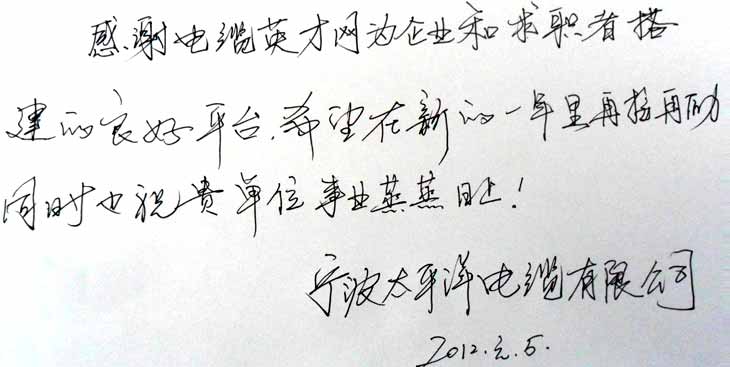 感谢电缆英才网为企业和求职者搭
建的良好平台.希望在新的一年里再接再励
同时也祝贵单位事业蒸蒸日上!
宁波太平洋电缆有限公司
2012.元.5.